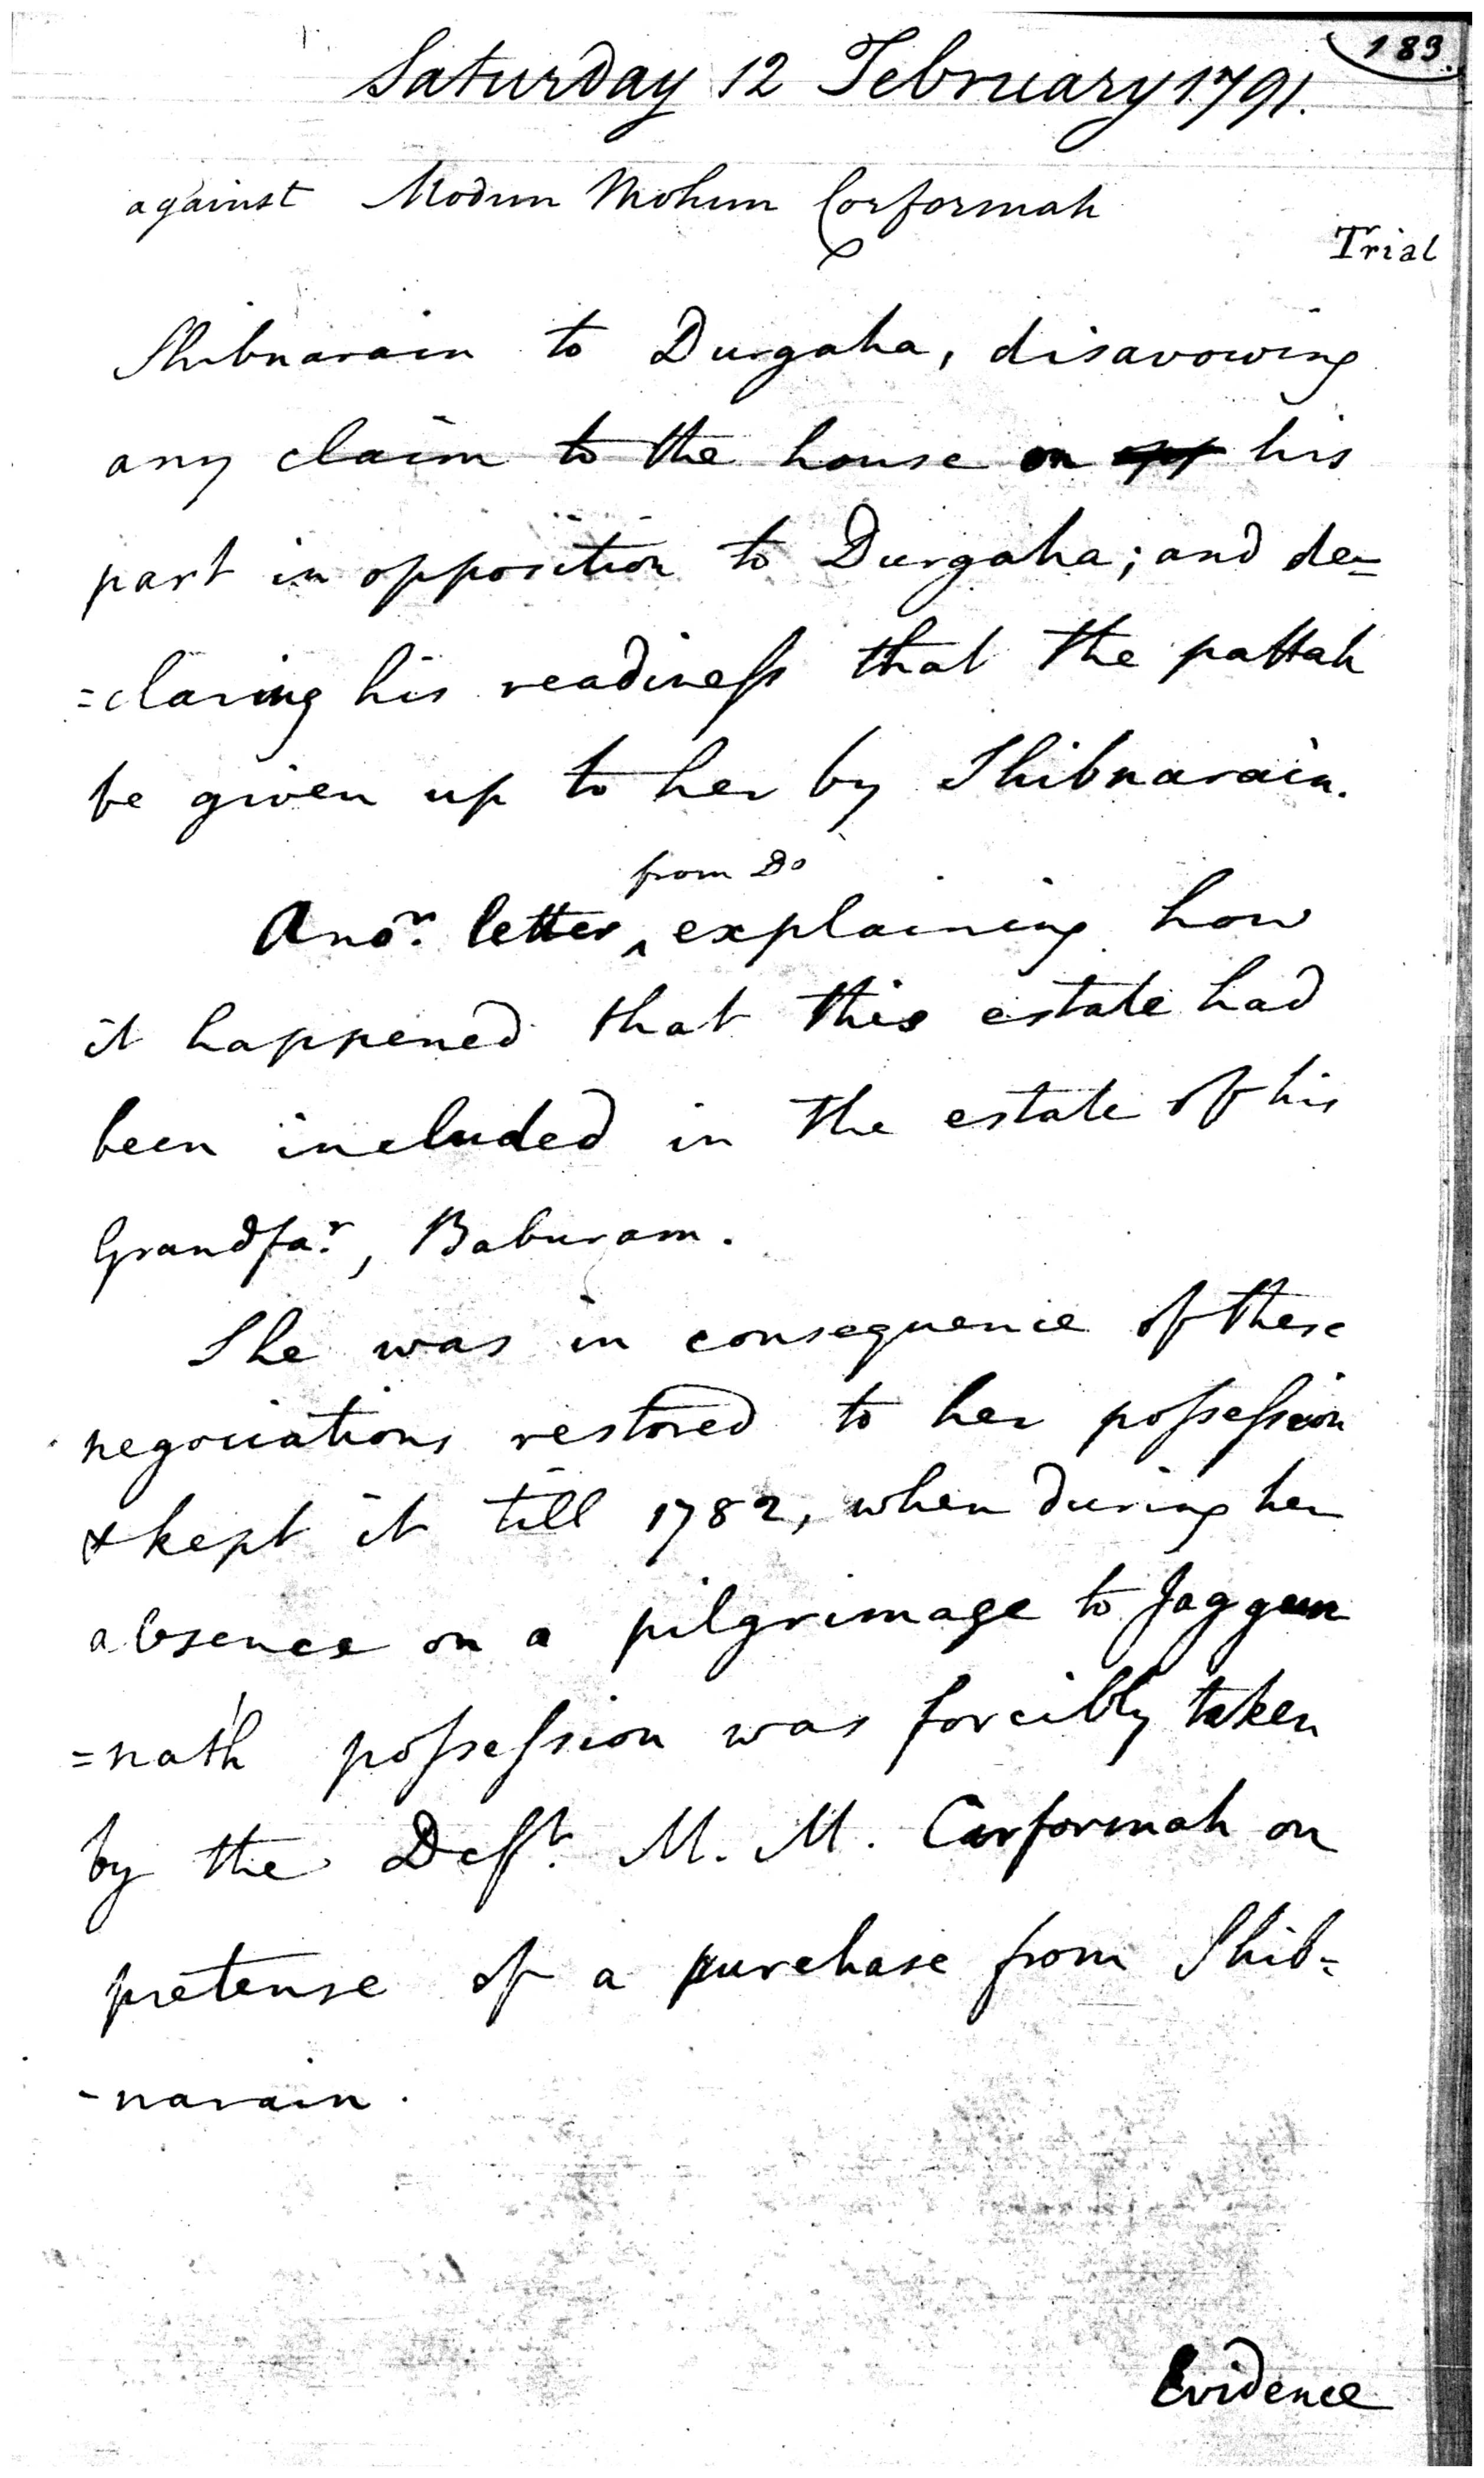 183.
Saturday 12 February 1791.
against Modun Mohun Corformah
Trial
Shibnarain to Durgaha, disavowing
any claim to the house on his
part in opposition to Durgaha; and de=
=claring his readiness that the pattah
be given up to her by Shibnarain.
from Do
Anor. letter ^ explaining how
it happened that this estate had
been included in the estate of his
Grandfar., Baburam.
She was in consequence of these
negociations restored to her possession
& kept it till 1782, when during her
absence on a pilgrimage to Jaggun
=nath possession was forcibly taken
by the Deft. M. M. Corformah on
pretense of a purchase from Shib=
-narain.
Evidence